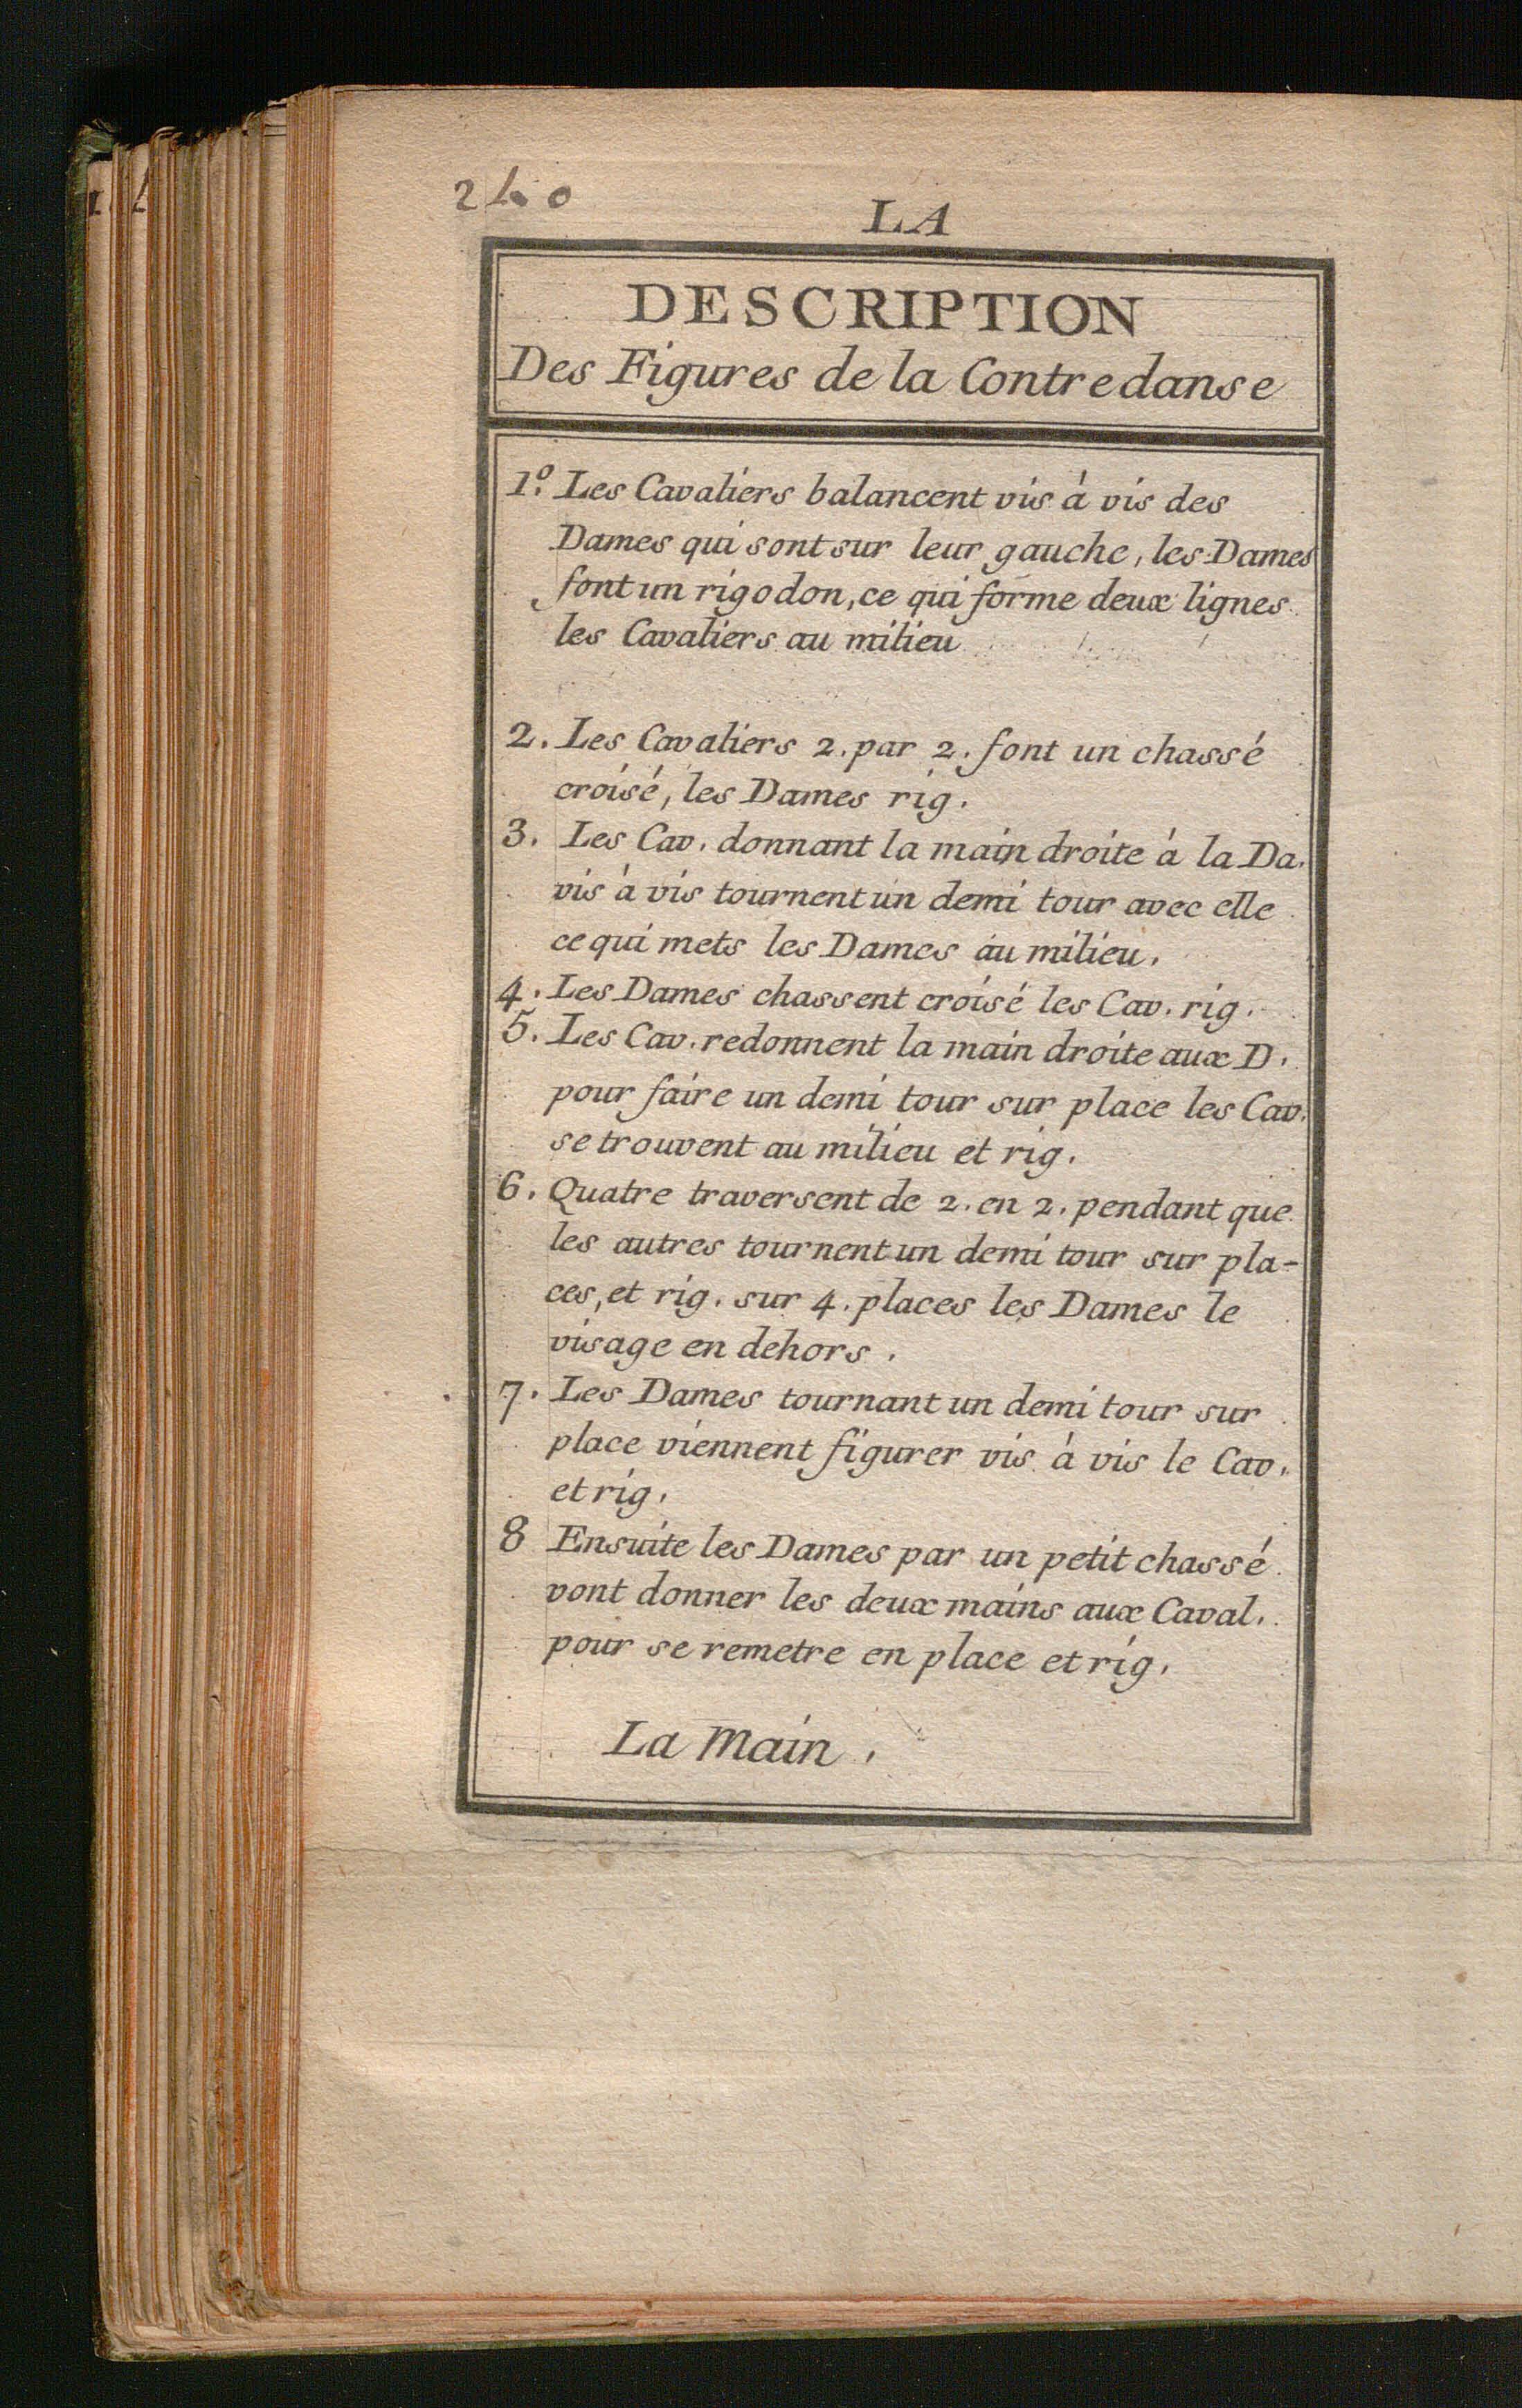 240
LA
DESCRIPTION
Des Figures de la Contredanse
1º. Les Cavaliers balancent vis à vis des
Dames qui sont sur leur gauche, les Dames
font un rigodon, ce qui forme deux lignes
les Cavaliers au milieu
2. Les Cavaliers 2. par 2. font un chassé
croisé, les Dames rig.
3. Les Cav. donnant la main droite à la Da.
vis à vis tournent un demi tour avec elle
ce qui mets les Dames au milieu.
4. Les Dames chassent croisé les Cav. rig.
5. Les Cav. redonnent la main droite aux D.
pour faire un demi tour sur place les Cav.
se trouvent au milieu et rig.
6. Quatre traversent de 2. en 2. pendant que
les autres tournent un demi tour sur pla-
ces, et rig. sur 4. places les Dames le
visage en dehors.
7. Les Dames tournant un demi tour sur
place viennent figurer vis à vis le Cav.
et rig.
8 Ensuite les Dames par un petit chassé
vont donner les deux mains aux Caval.
pour se remetre en place et rig.
La Main.